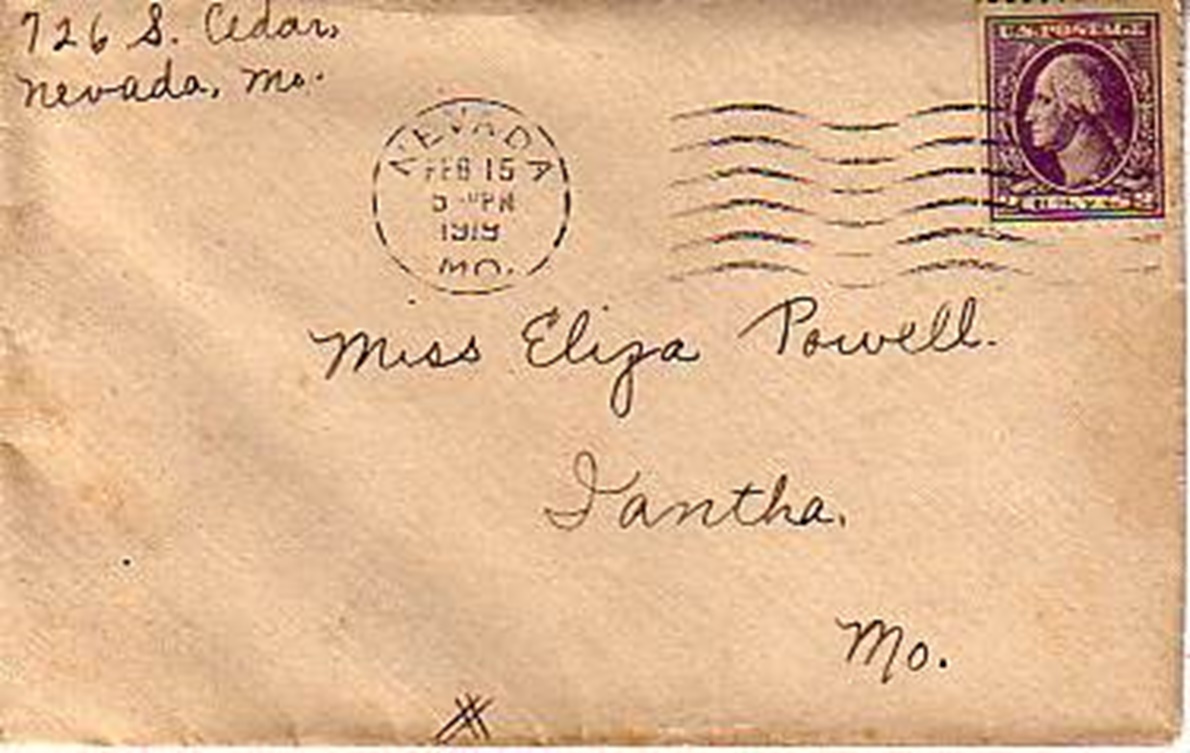 726 S. Cedar,
Nevada, Mo.
U.S. POSTAGE
NEVADA
FEB 15
5 - PM
1919
MO.
Miss Eliza Powell.
Iantha,
Mo.